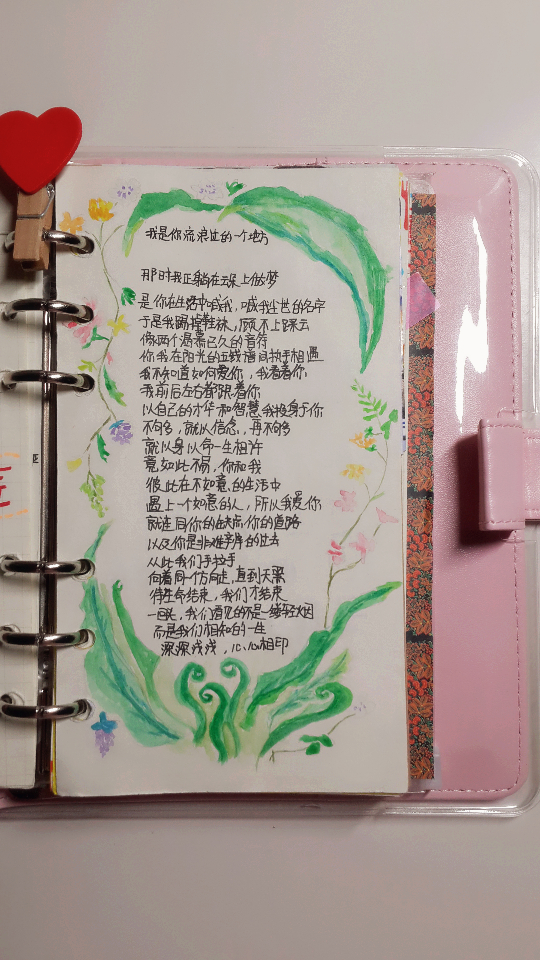 我是你流浪过的一个地方
那时我正躺在云朵上做梦
是你在生活中喊我，喊我尘世的名字
于是我踢掉鞋袜，顾不上踩云
像两个渴慕已久的音符
你我在阳光的五线谱间执手相遇
我不知道如何爱你，我看着你
我前后左右都跟着你
以自己的才华和智慧我投身于你
不够多，就以信念，再不够
就以身以命一生相许
竟如此不易，你和我
彼此在不如意的生活中
遇上一个如意的人，所以我爱你
就连同你的缺点你的道路
以及你是非难辨的过去
从此我们手拉手
向着同一个方向走，直到天黑
待生命结束，我们才结束
一回头，我们看见的不是一缕轻烟
而是我们相知的一生
深深浅浅，心心相印